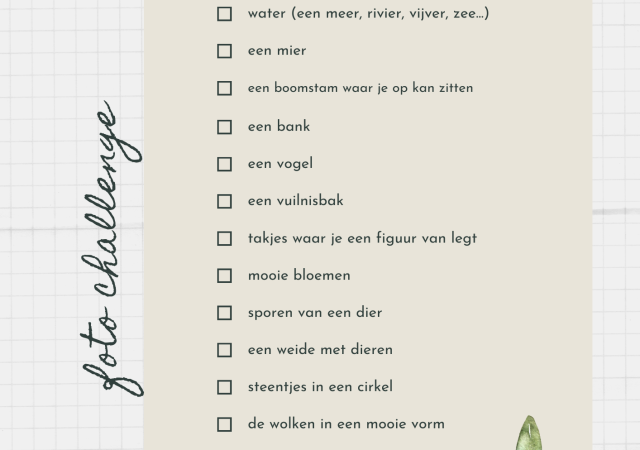 foto challenge
water (een meer, rivier, vijver, zee...)
een mier
een boomstam waar je op kan zitten
een bank
een vogel
een vuilnisbak
takjes waar je een figuur van legt
mooie bloemen
sporen van een dier
een weide met dieren
steentjes in een cirkel
de wolken in een mooie vorm